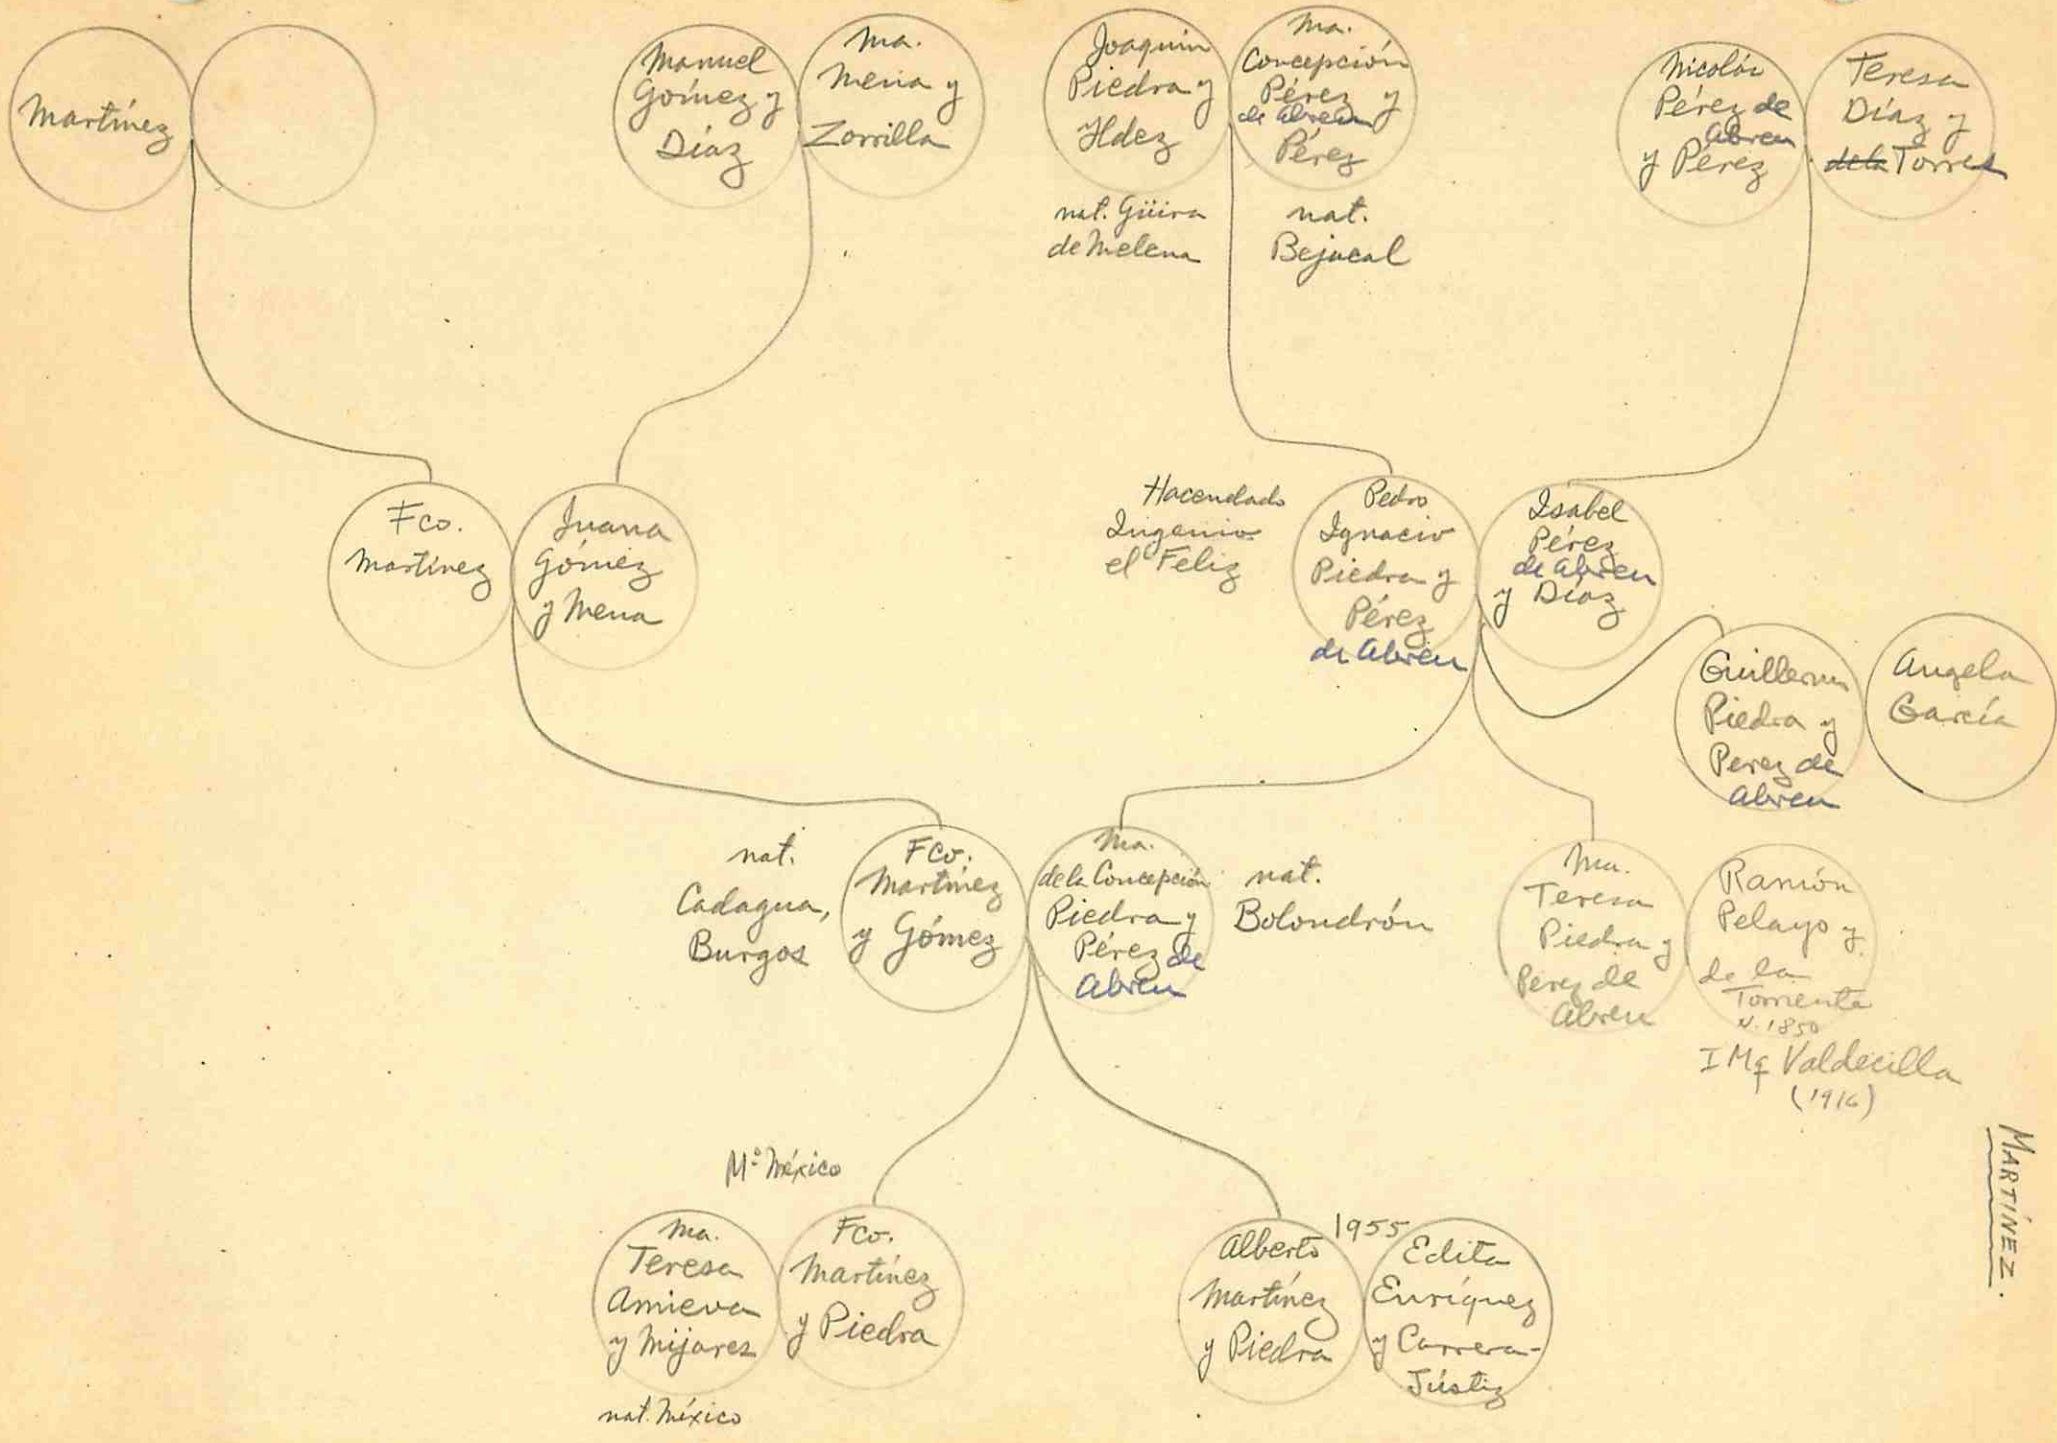 Martínez
Manuel
Gómez y
Díaz
Ma.
Mena y
Zorrilla
Joaquin
Piedra y
Hdez
nat. Güira
de Melena
Ma.
Concepción
Pérez y
de Abreu
Pérez
nat.
Bejucal
Nicolás
Pérez de
Abreu
y Pérez
Teresa
Díaz y
de la Torres
Fco.
Martínez
Juana
Gómez
y Mena
Hacendado
Ingenio
el Feliz
Pedro
Ignacio
Piedra y
Pérez
de Abreu
Isabel
Pérez
de Abreu
y Díaz
Guillermo
Piedra y
Perez de
Abreu
Angela
García
nat.
Cadagua,
Burgos
Fco.
Martínez
y Gómez
Ma.
de la Concepción
Piedra y
Pérez de
Abreu
nat.
Bolondrón
Ma.
Teresa
Piedra y
Perez de
Abreu
Ramón
Pelayo y
de la
Torriente
N. 1850
I Mq Valdecilla
(1916)
Mº México
Ma.
Teresa
Amieva
y Mijares
nat. México
Fco.
Martínez
y Piedra
Alberto
Martínez
y Piedra
1955
Edita
Enríquez
y Carrera-
Jústiz
MARTÍNEZ.